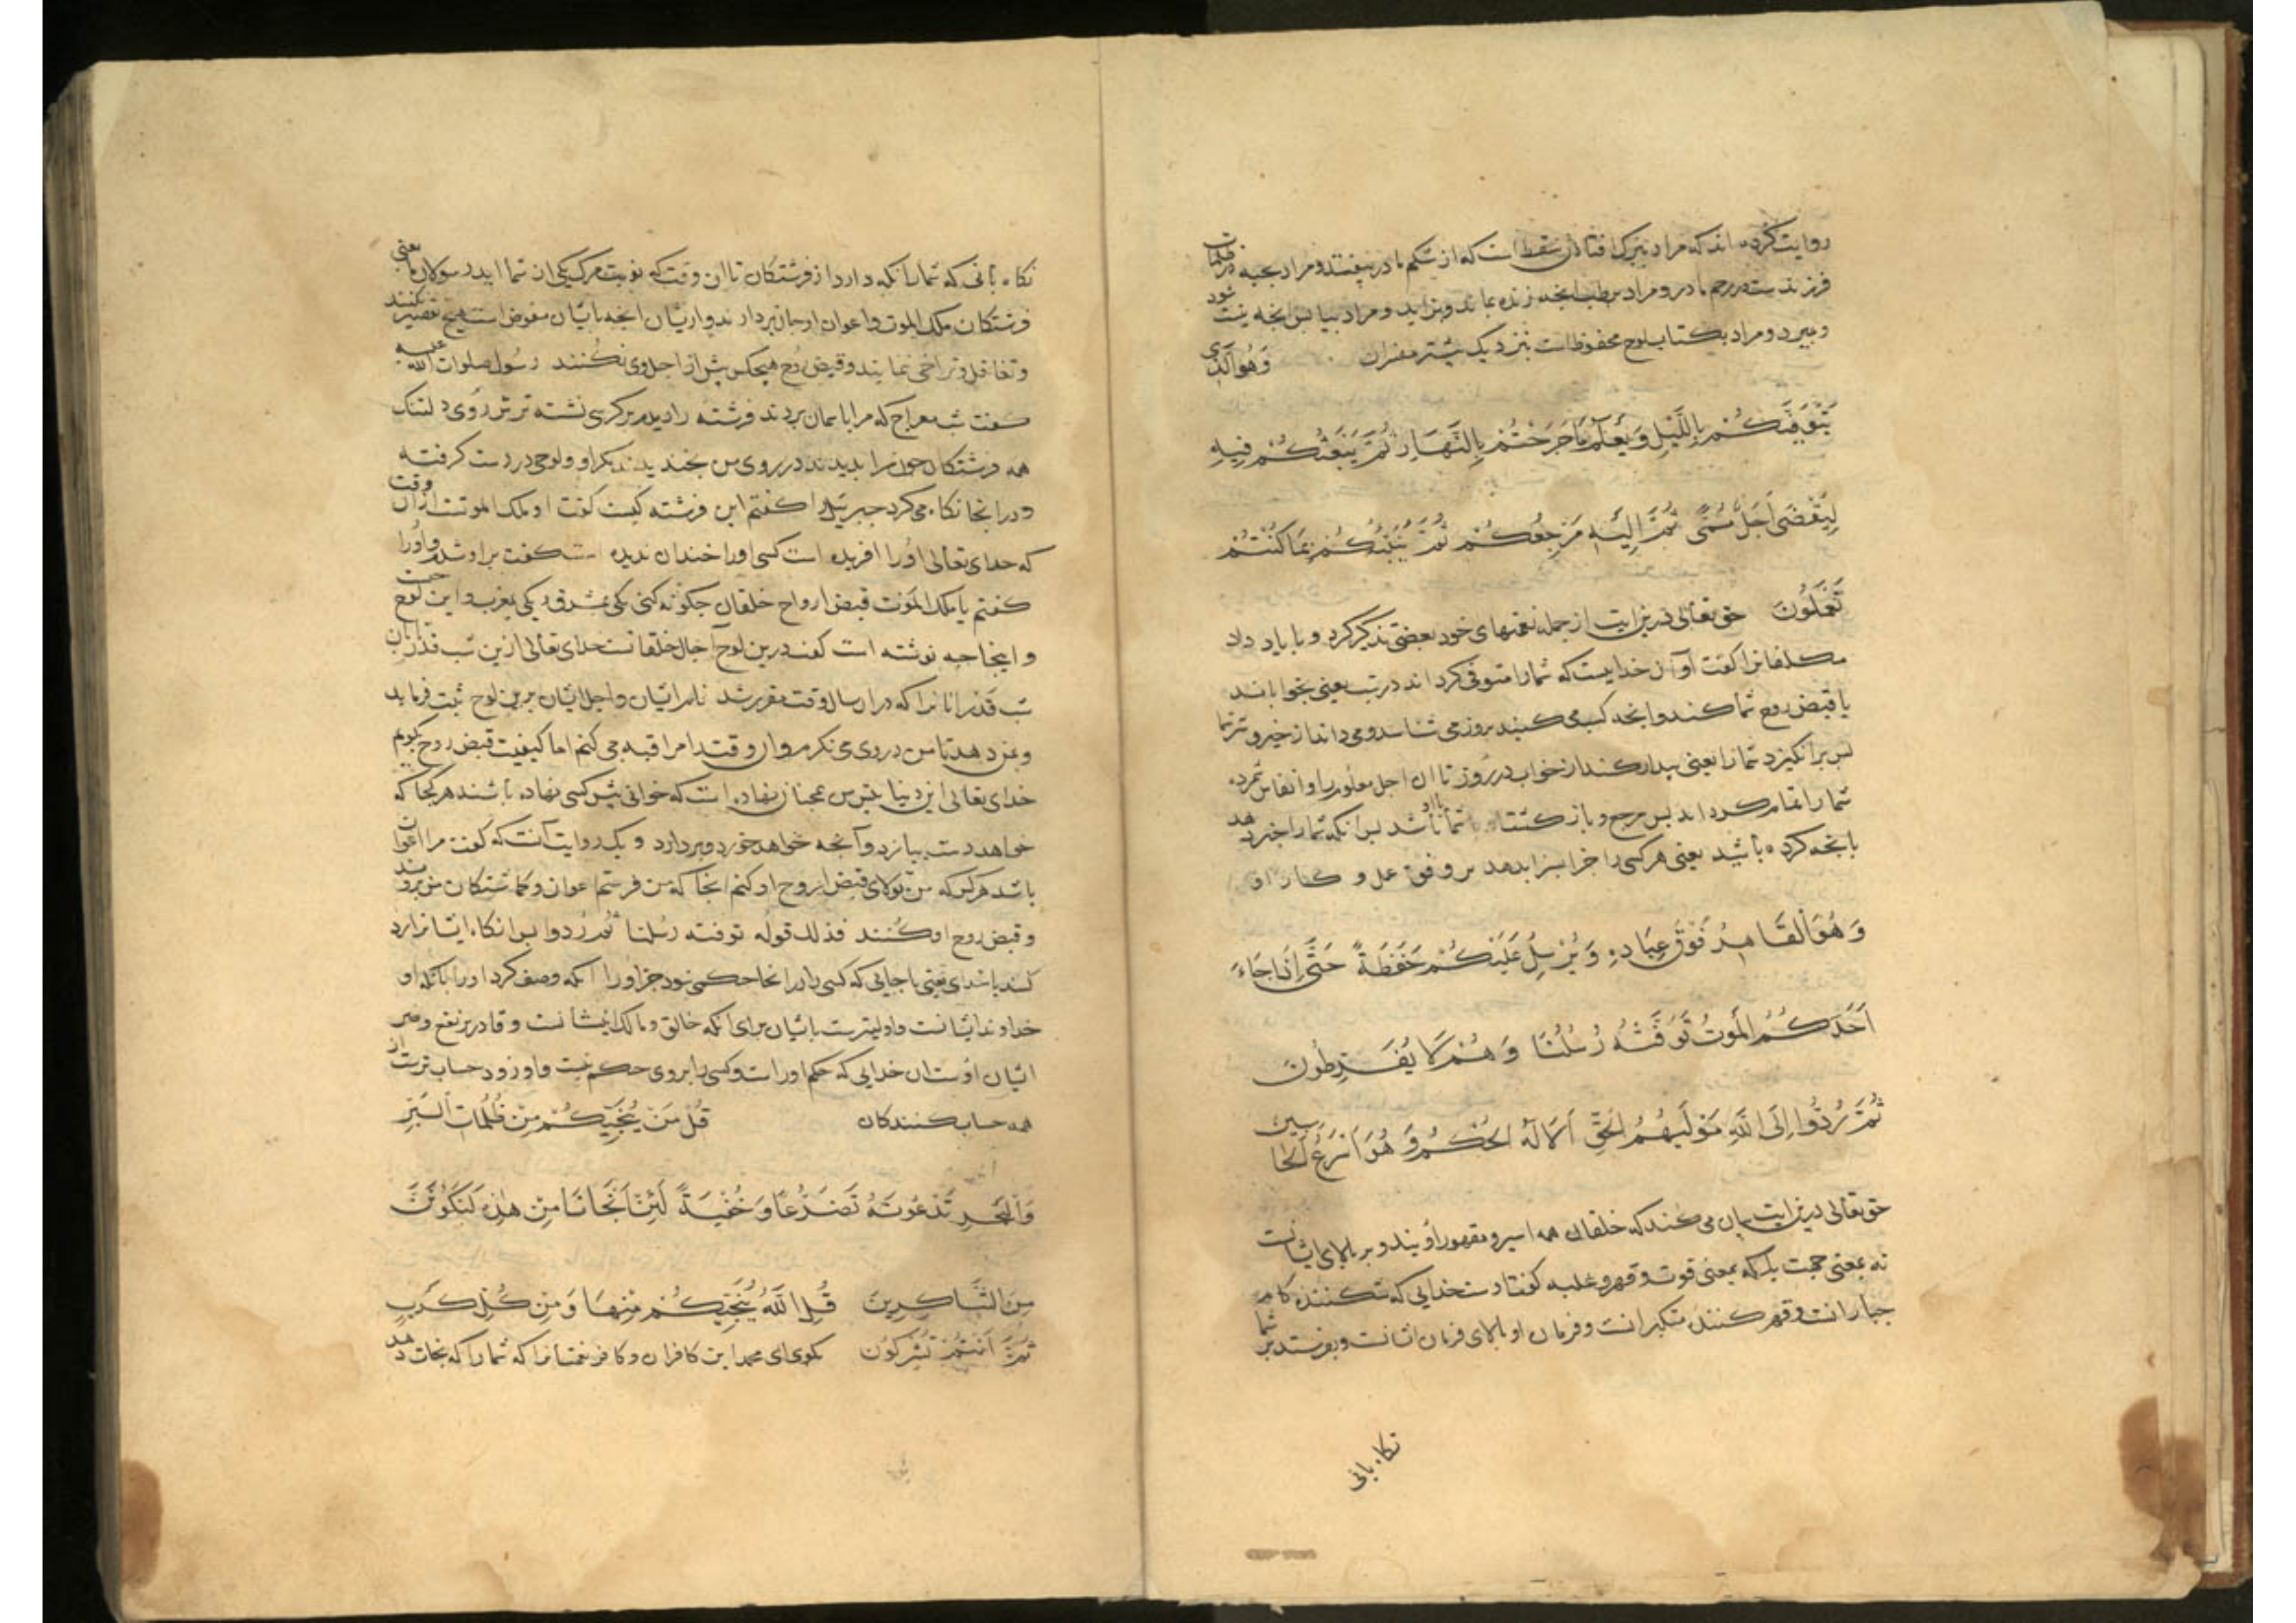 روایت کرده اند که مراد ببرک افتادن سقط است که از شکم مادر بیفتد و مراد بحبه در ظلمات
فرزندست در رحم مادر و مراد برطب آنچه زنده بماند و بزاید و مراد بیابس آنچه نیست شود
و بمیرد و مراد بکتاب لوح محفوظ است بنزدیک بیشتر مفسران وَهُوَ الَّذِی
یَتَوَفّٰیکُمْ بِاللَّیْلِ وَیَعْلَمُ مَا جَرَحْتُمْ بِالنَّهَارِ ثُمَّ یَبْعَثُکُمْ فِیهِ
لِیُقْضَی اَجَلٌ مُسَمًّی ثُمَّ اِلَیْهِ مَرْجِعُکُمْ ثُمَّ یُنَبِّئُکُمْ بِمَا کُنْتُمْ
تَعْمَلُونَ حق تعالی درین ایت از جمله نعمتهای خود بعضی تذکیر کرد و با یاد داد
مکلفانرا کفت او آن خداییست که شمارا متوفی کرداند در شب یعنی بخواباند
یا قبض روح شما کند و آنچه کسب می کنید بروز می شناسد و می داند از خیر و شر شما
پس برانکیزد شمارا یعنی بیدار کند از خواب در روز تا ان اجل معلوم را و انفاس شمرده
شما را تمام کرداند پس مرجع و باز کشت شما باشد پس انکه شمارا خبر دهد
بانچه کرده باشید یعنی هر کسی را جزا بسزا بدهد بر وفق عمل و کار او
وَهُوَ الْقَاهِرُ فَوْقَ عِبَادِهِ وَیُرْسِلُ عَلَیْکُمْ حَفَظَةً حَتَّی اِذَا جَاءَ
اَحَدَکُمُ الْمَوْتُ تَوَفَّتْهُ رُسُلُنَا وَهُمْ لَا یُفَرِّطُونَ
ثُمَّ رُدُّوا اِلَی اللّٰهِ مَوْلَیهُمُ الْحَقِّ اَلَا لَهُ الْحُکْمُ وَهُوَ اَسْرَعُ الْحَاسِبِینَ
حق تعالی درین ایت بیان می کند که خلقان همه اسیر و مقهور اویند و بر بالای ایشانست
نه بمعنی جهت بلکه بمعنی قوت و قهر و غلبه کفت اوست خدایی که شکننده کام
جبارانست و قهر کننده متکبرانست و فرمان او بالای فرمان ایشانست و بفرستد بر شما
نکاه بانی
نکاه بانی که شمارا نکه دارد از فرشتکان تا ان وقت که نوبت مرک یکی ان شما اید رسولان ما یعنی
فرشتکان ملک الموت و اعوان او جان بردارند و ایشان انچه بایشان مفوض است هیچ تقصیر نکنند
و تغافل و تراخی ننمایند و قبض روح هیچکس پیش از اجل وی نکنند رسول صلوات الله علیه
کفت شب معراج که مرا باسمان بردند فرشته را دیدم بر کرسی نشسته ترش روی دلتنک
همه فرشتکان چون مرا بدیدند در روی من بخندیدند مکر او و لوحی در دست کرفته
و در انجا نکاه می کرد جبریل را کفتم این فرشته کیست کفت او ملک الموتست از آن وقت
که خدای تعالی او را آفریده است کسی او را خندان ندیده است کفت براو شدم و او را
کفتم یا ملک الموت قبض ارواح خلقان چکونه کنی یکی بمشرق و یکی بمغرب و این لوح چیست
و اینجا چه نوشته است کفت درین لوح آجال خلقانست خدای تعالی ازین شب قدر تا بان
شب قدر انانرا که در ان سال وقت مقرر شد نام ایشان و اجل ایشان برین لوح ثبت فرماید
و بمن دهد تا من در وی می نکرم و ان وقت را مراقبه می کنم اما کیفیت قبض روح بکویم
خدای تعالی این دنیا پیش من همچنان نهاده است که خوانی پیش کسی نهاده باشند هر کجا که
خواهد دست بیازد و آنچه خواهد خورد و بردارد و یک روایت آنست که کفت مرا اعوان
باشد هر کس که من تولای قبض روح او کنم انجا که من فرستم اعوان و کماشتکان من بروند
و قبض روح او کنند فذلک قوله توفته رسلنا ثم ردوا پس انکاه ایشانرا رد
کنند با خدای یعنی با جایی که کسی را در انجا حکمی نبود جز او را انکه وصف کرد او را بانکه او
خداوند ایشانست و اولیترست بایشان برای انکه خالق و مالک ایشانست و قادر بر نفع و ضر
ایشان اوست ان خدایی که حکم اوراست و کسی را بروی حکم نیست و او زود حساب ترست از
همه حساب کنندکان قُلْ مَنْ یُنَجِّیکُمْ مِنْ ظُلُمَاتِ الْبَرِّ
وَالْبَحْرِ تَدْعُونَهُ تَضَرُّعًا وَخُفْیَةً لَئِنْ اَنْجَانَا مِنْ هٰذِهِ لَنَکُونَنَّ
مِنَ الشَّاکِرِینَ قُلِ اللّٰهُ یُنَجِّیکُمْ مِنْهَا وَمِنْ کُلِّ کَرْبٍ
ثُمَّ اَنْتُمْ تُشْرِکُونَ بکوی ای محمد این کافران و کافر نعمتانرا که شما را که نجات دهد